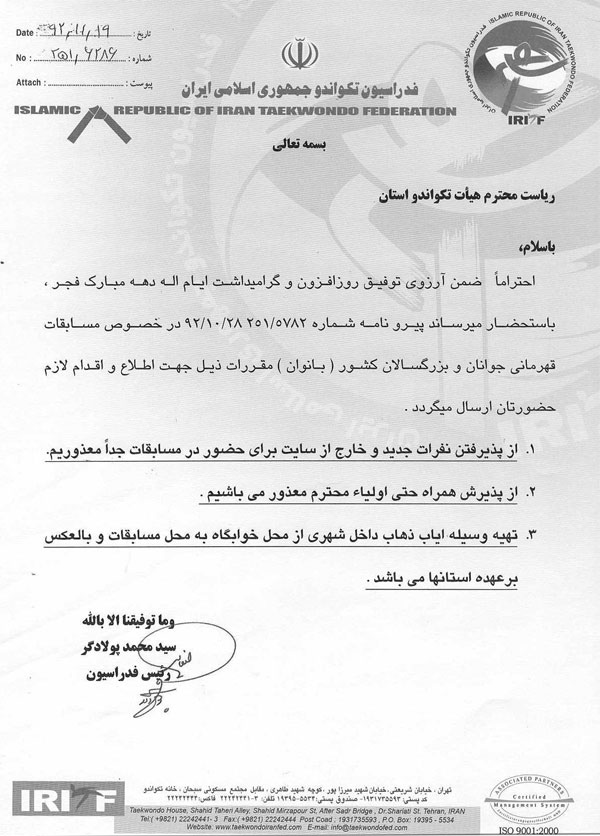 Date : ۹۲/۱۱/۱۹ تاریخ :
No : ۲۵۱/۶۲۸۶ شماره :
Attach : پیوست :
ISLAMIC REPUBLIC OF IRAN TAEKWONDO FEDERATION
فدراسیون تکواندو جمهوری اسلامی ایران
IRITF
فدراسیون تکواندو جمهوری اسلامی ایران
ISLAMIC REPUBLIC OF IRAN TAEKWONDO FEDERATION
بسمه تعالی
ریاست محترم هیأت تکواندو استان
باسلام،
احتراماً ضمن آرزوی توفیق روزافزون و گرامیداشت ایام اله دهه مبارک فجر ،
باستحضار میرساند پیرو نامه شماره ۲۵۱/۵۷۸۲ ۹۲/۱۰/۲۸ در خصوص مسابقات
قهرمانی جوانان و بزرگسالان کشور ( بانوان ) مقررات ذیل جهت اطلاع و اقدام لازم
حضورتان ارسال میگردد .
۱. از پذیرفتن نفرات جدید و خارج از سایت برای حضور در مسابقات جداً معذوریم.
۲. از پذیرش همراه حتی اولیاء محترم معذور می باشیم .
۳. تهیه وسیله ایاب ذهاب داخل شهری از محل خوابگاه به محل مسابقات و بالعکس
برعهده استانها می باشد .
وما توفیقنا الا بالله
سید محمد پولادگر
رئیس فدراسیون
IRITF
تهران . خیابان شریعتی. خیابان شهید میرزا پور. کوچه شهید طاهری . مقابل مجتمع مسکونی سبحان . خانه تکواندو
کد پستی: ۱۹۳۱۷۳۵۵۹۳- صندوق پستی: ۵۵۳۴-۱۹۳۹۵ تلفن: ۳-۲۲۲۴۲۴۴۱ فاکس: ۲۲۲۴۲۴۴۴
Taekwondo House, Shahid Taheri Alley, Shahid Mirzapour St. After Sadr Bridge , Dr.Shariati St. Tehran, IRAN
Tel:( +9821) 22242441- 3 Fax:(+9821) 22242444 Post Coad : 1931735593 , P.O. Box: 19395 - 5534
Website: www.taekwondoiranfed.com E-mail: info@taekwondofed.com
ASSOCIATED PARTNERS
Certified
Management System
ISO 9001:2000